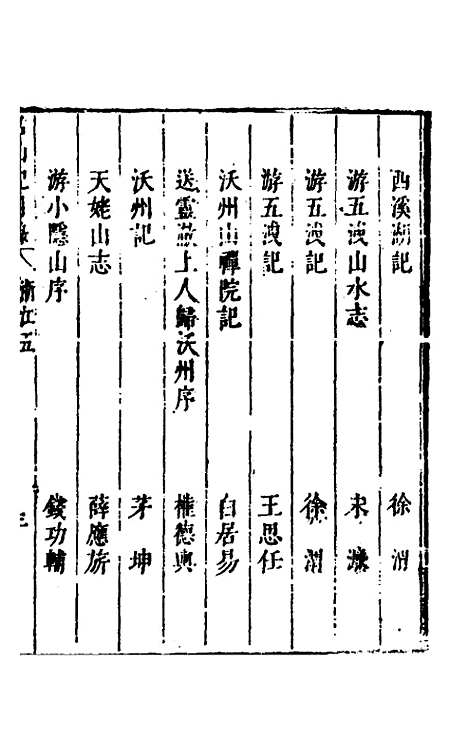 西溪湖記 徐渭
游五洩山水志 宋濂
游五洩記 徐渭
游五洩記 王思任
沃州山禪院記 白居易
送靈澈上人歸沃州序 權德輿
沃州記 茅坤
天姥山志 薛應旂
游小隱山序 錢功輔
名山記目錄 浙江五 三